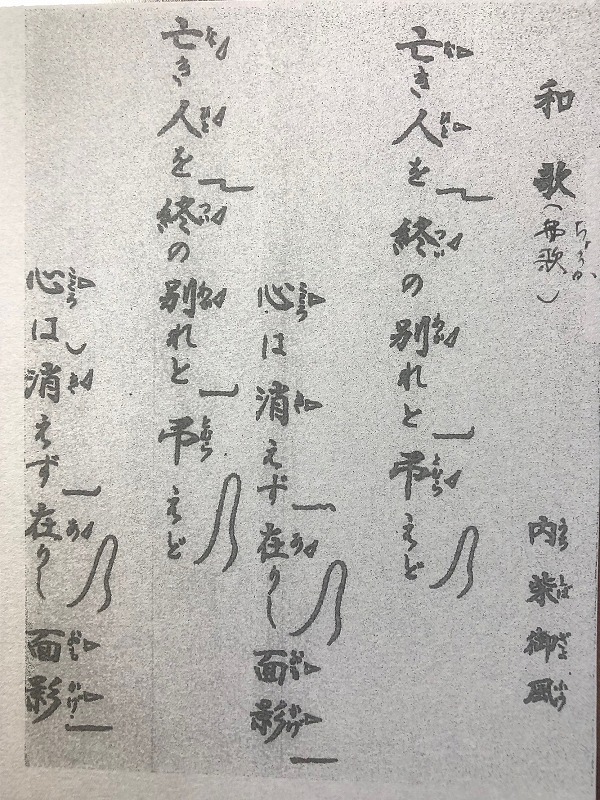 和歌(弔歌)
内柴御風
亡き人を終の別れと弔えど
心は消えず在りし面影
亡き人を終の別れと弔えど
心は消えず在りし面影